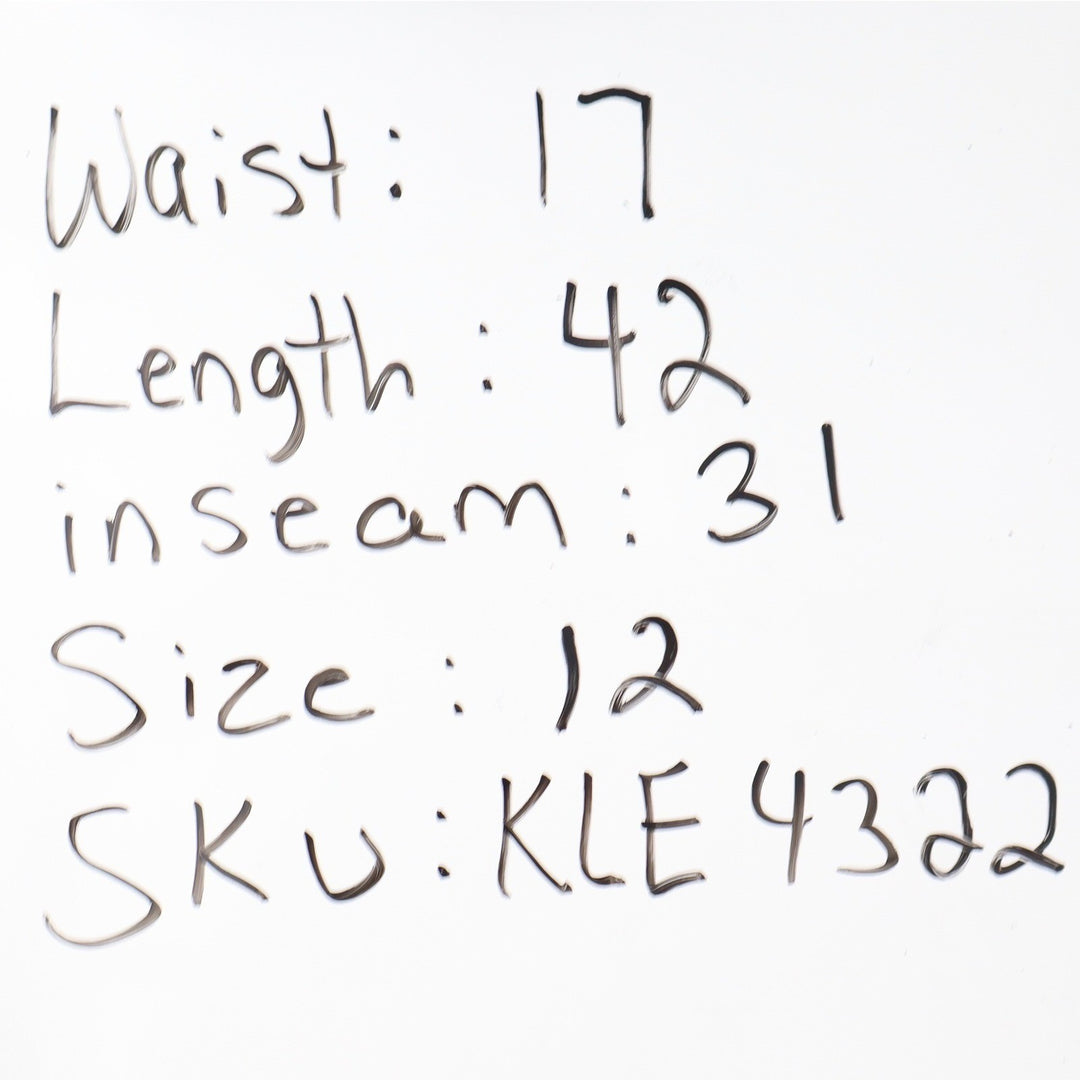 Waist: 17
Length: 42
inseam: 31
Size: 12
SKU: KLE4322